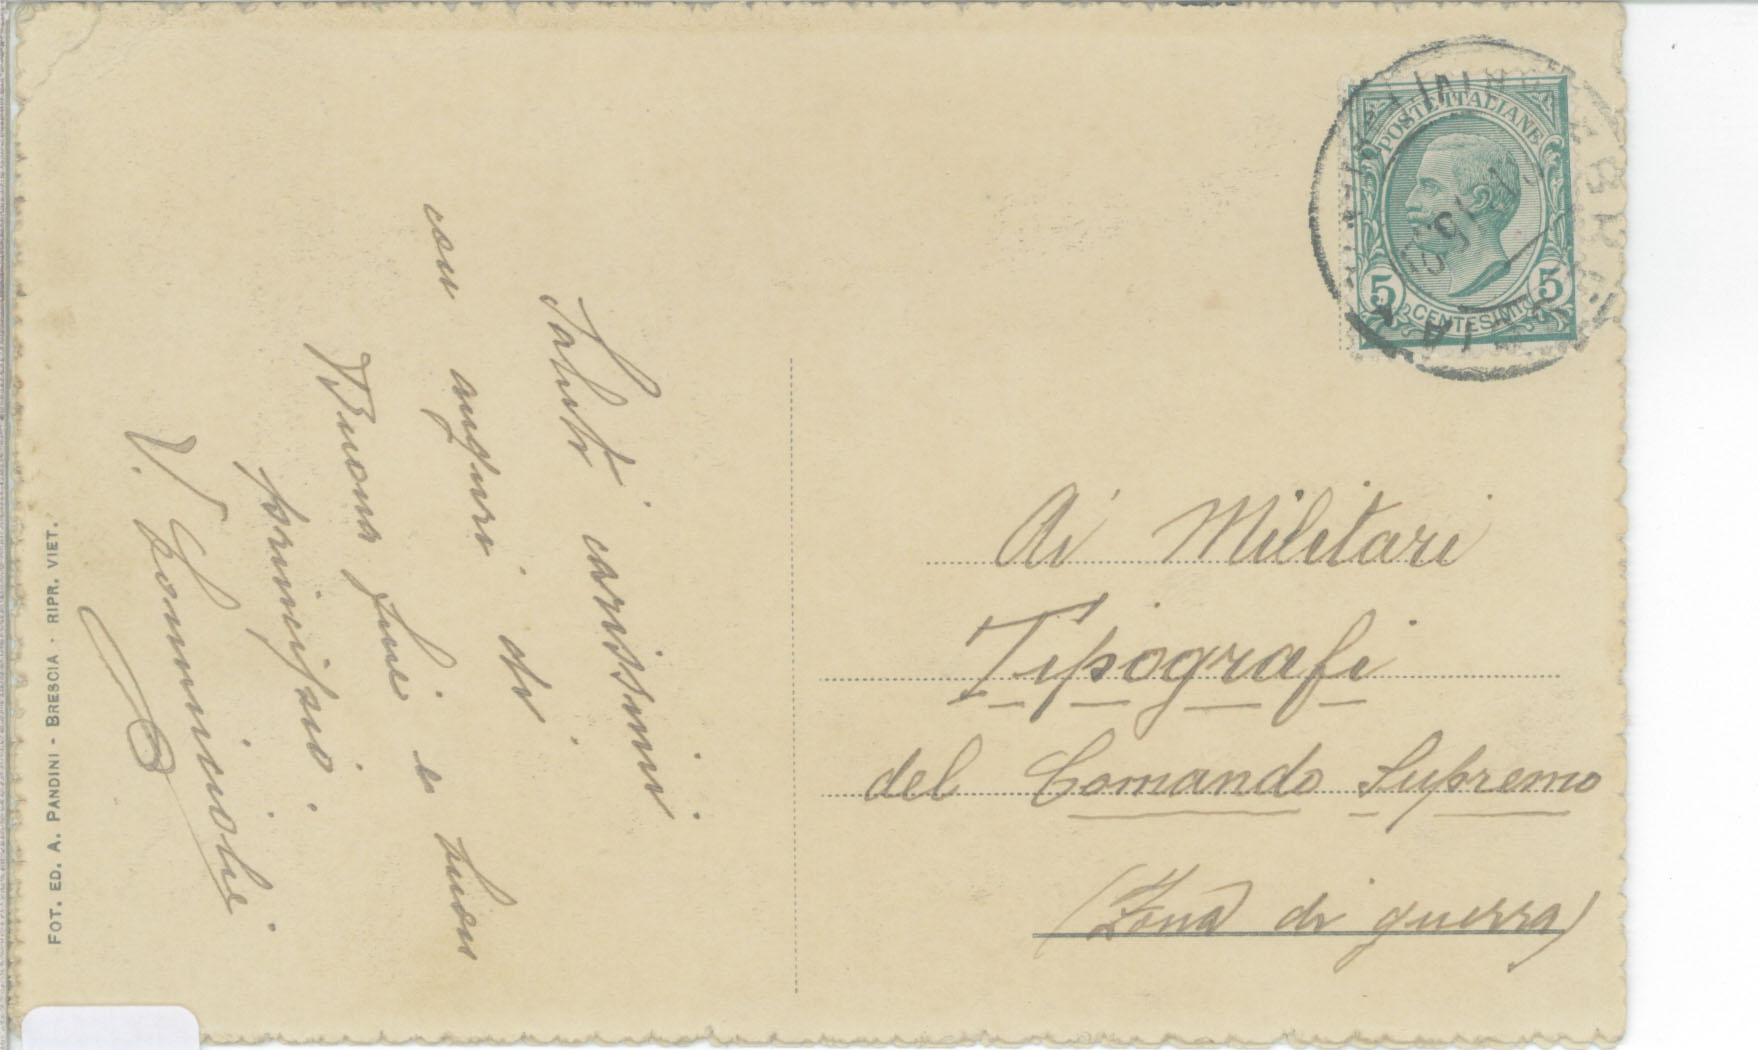 POSTE ITALIANE
5 5
CENTESIMI
Saluti carissimi
con auguri di
Buona fine e buon
principio.
Ai Militari
Tipografi
del Comando Supremo
(Zona di guerra)
FOT. ED. A. PANDINI - BRESCIA - RIPR. VIET.